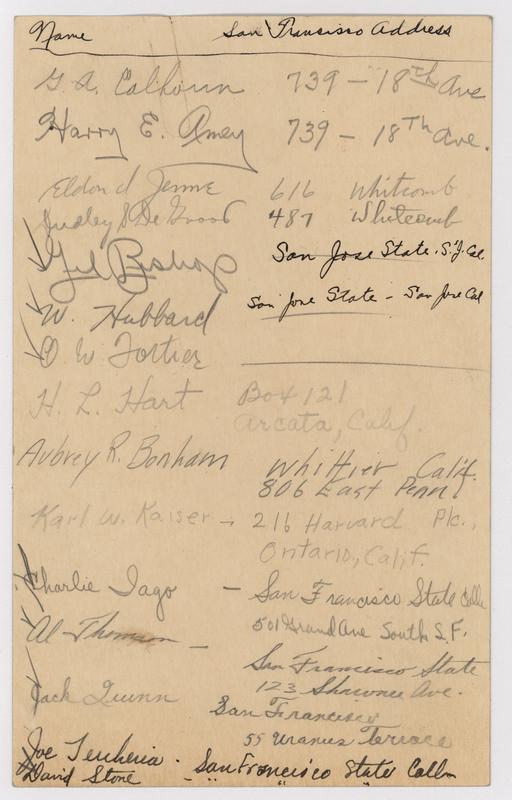 Name San Francisco Address
G. A. Calhoun 739 - 18th Ave
Harry E. Amey 739 - 18Th Ave.
Eldon d Jenne 616 Whitcomb
Dudley S De Groot 487 Whitcomb
Gil Bishop San Jose State, S.J. Cal.
W. Hubbard San Jose State - San Jose Cal
O W Fortier
H. L. Hart Box 121
Arcata, Calif.
Aubrey R. Bonham Whittier Calif.
806 East Penn
Karl W. Kaiser - 216 Harvard Plc.,
Ontario, Calif.
Charlie Iago - San Francisco State Colle
501 Grand Ave South S.F.
Al Thomson - San Francisco State
123 Shawnee Ave.
Jack Quinn San Francisco
55 Uranus Terrace
Joe Teicheria . San Francisco State Collm
David Stone " " "